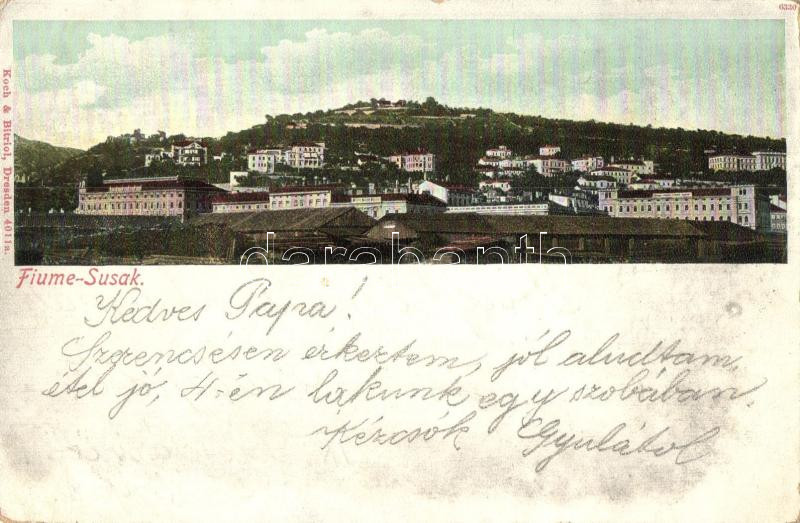 6330
Koch & Bitriol, Dresden 4011a.
darabanth
Fiume--Susak.
Kedves Papa!
Szerencsésen érkeztem, jól aludtam,
étel jó, 4-én lakunk egy szobában.
Kézcsók Gyulától